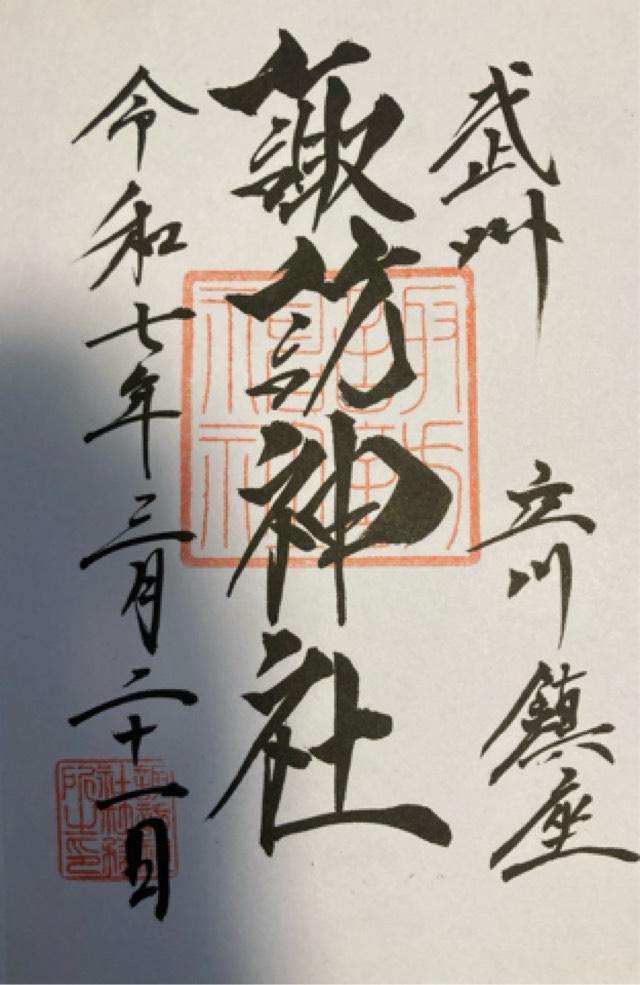 武州 立川鎮座
諏訪神社
令和七年三月二十一日